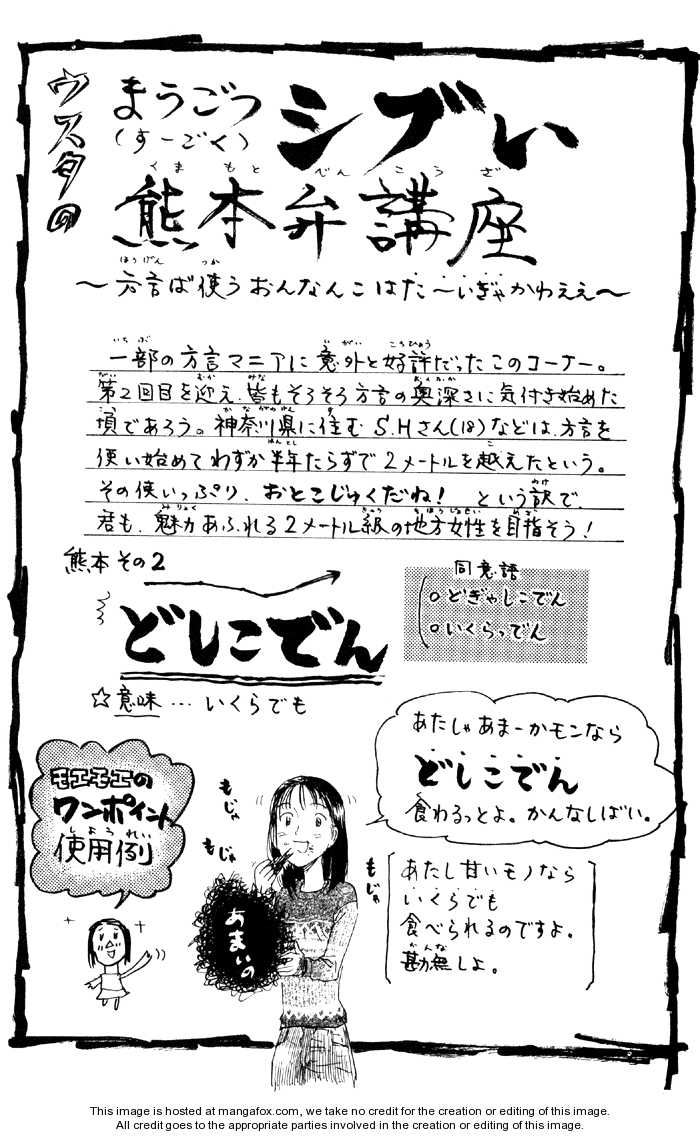 ウスタの
まうごつ シブい
(すーごく)
くまもとべんこうざ
熊本弁講座
ほうげん つか
〜方言ば使うおんなんこはた〜いぎゃかわええ〜
いちぶ いがい こうひょう
一部の方言マニアに意外と好評だったこのコーナー。
だい むか みな おくふか
第2回目を迎え、皆もそろそろ方言の奥深さに気付き始めた
ころ かながわけん す
頃であろう。神奈川県に住むS.Hさん(18)などは、方言を
はんとし こ
使い始めてわずか半年たらずで2メートルを越えたという。
わけ
その使いっぷり、おとこじゅくだね! という訳で、
みりょく きゅう ちほうじょせい めざ
君も、魅力あふれる2メートル級の地方女性を目指そう!
熊本その2
どしこでん
同意語
○どぎゃしこでん
○いくらっでん
☆意味…いくらでも
モエモエの
ワンポイント
しようれい
使用例
あたしゃあまーかモンなら
どしこでん
食わるっとよ。かんなしばい。
あたし甘いモノなら
いくらでも
食べられるのですよ。
かんな
勘無しよ。
もじゃ
もじゃ
もじゃ
あまいの
This image is hosted at mangafox.com, we take no credit for the creation or editing of this image.
All credit goes to the appropriate parties involved in the creation or editing of this image.